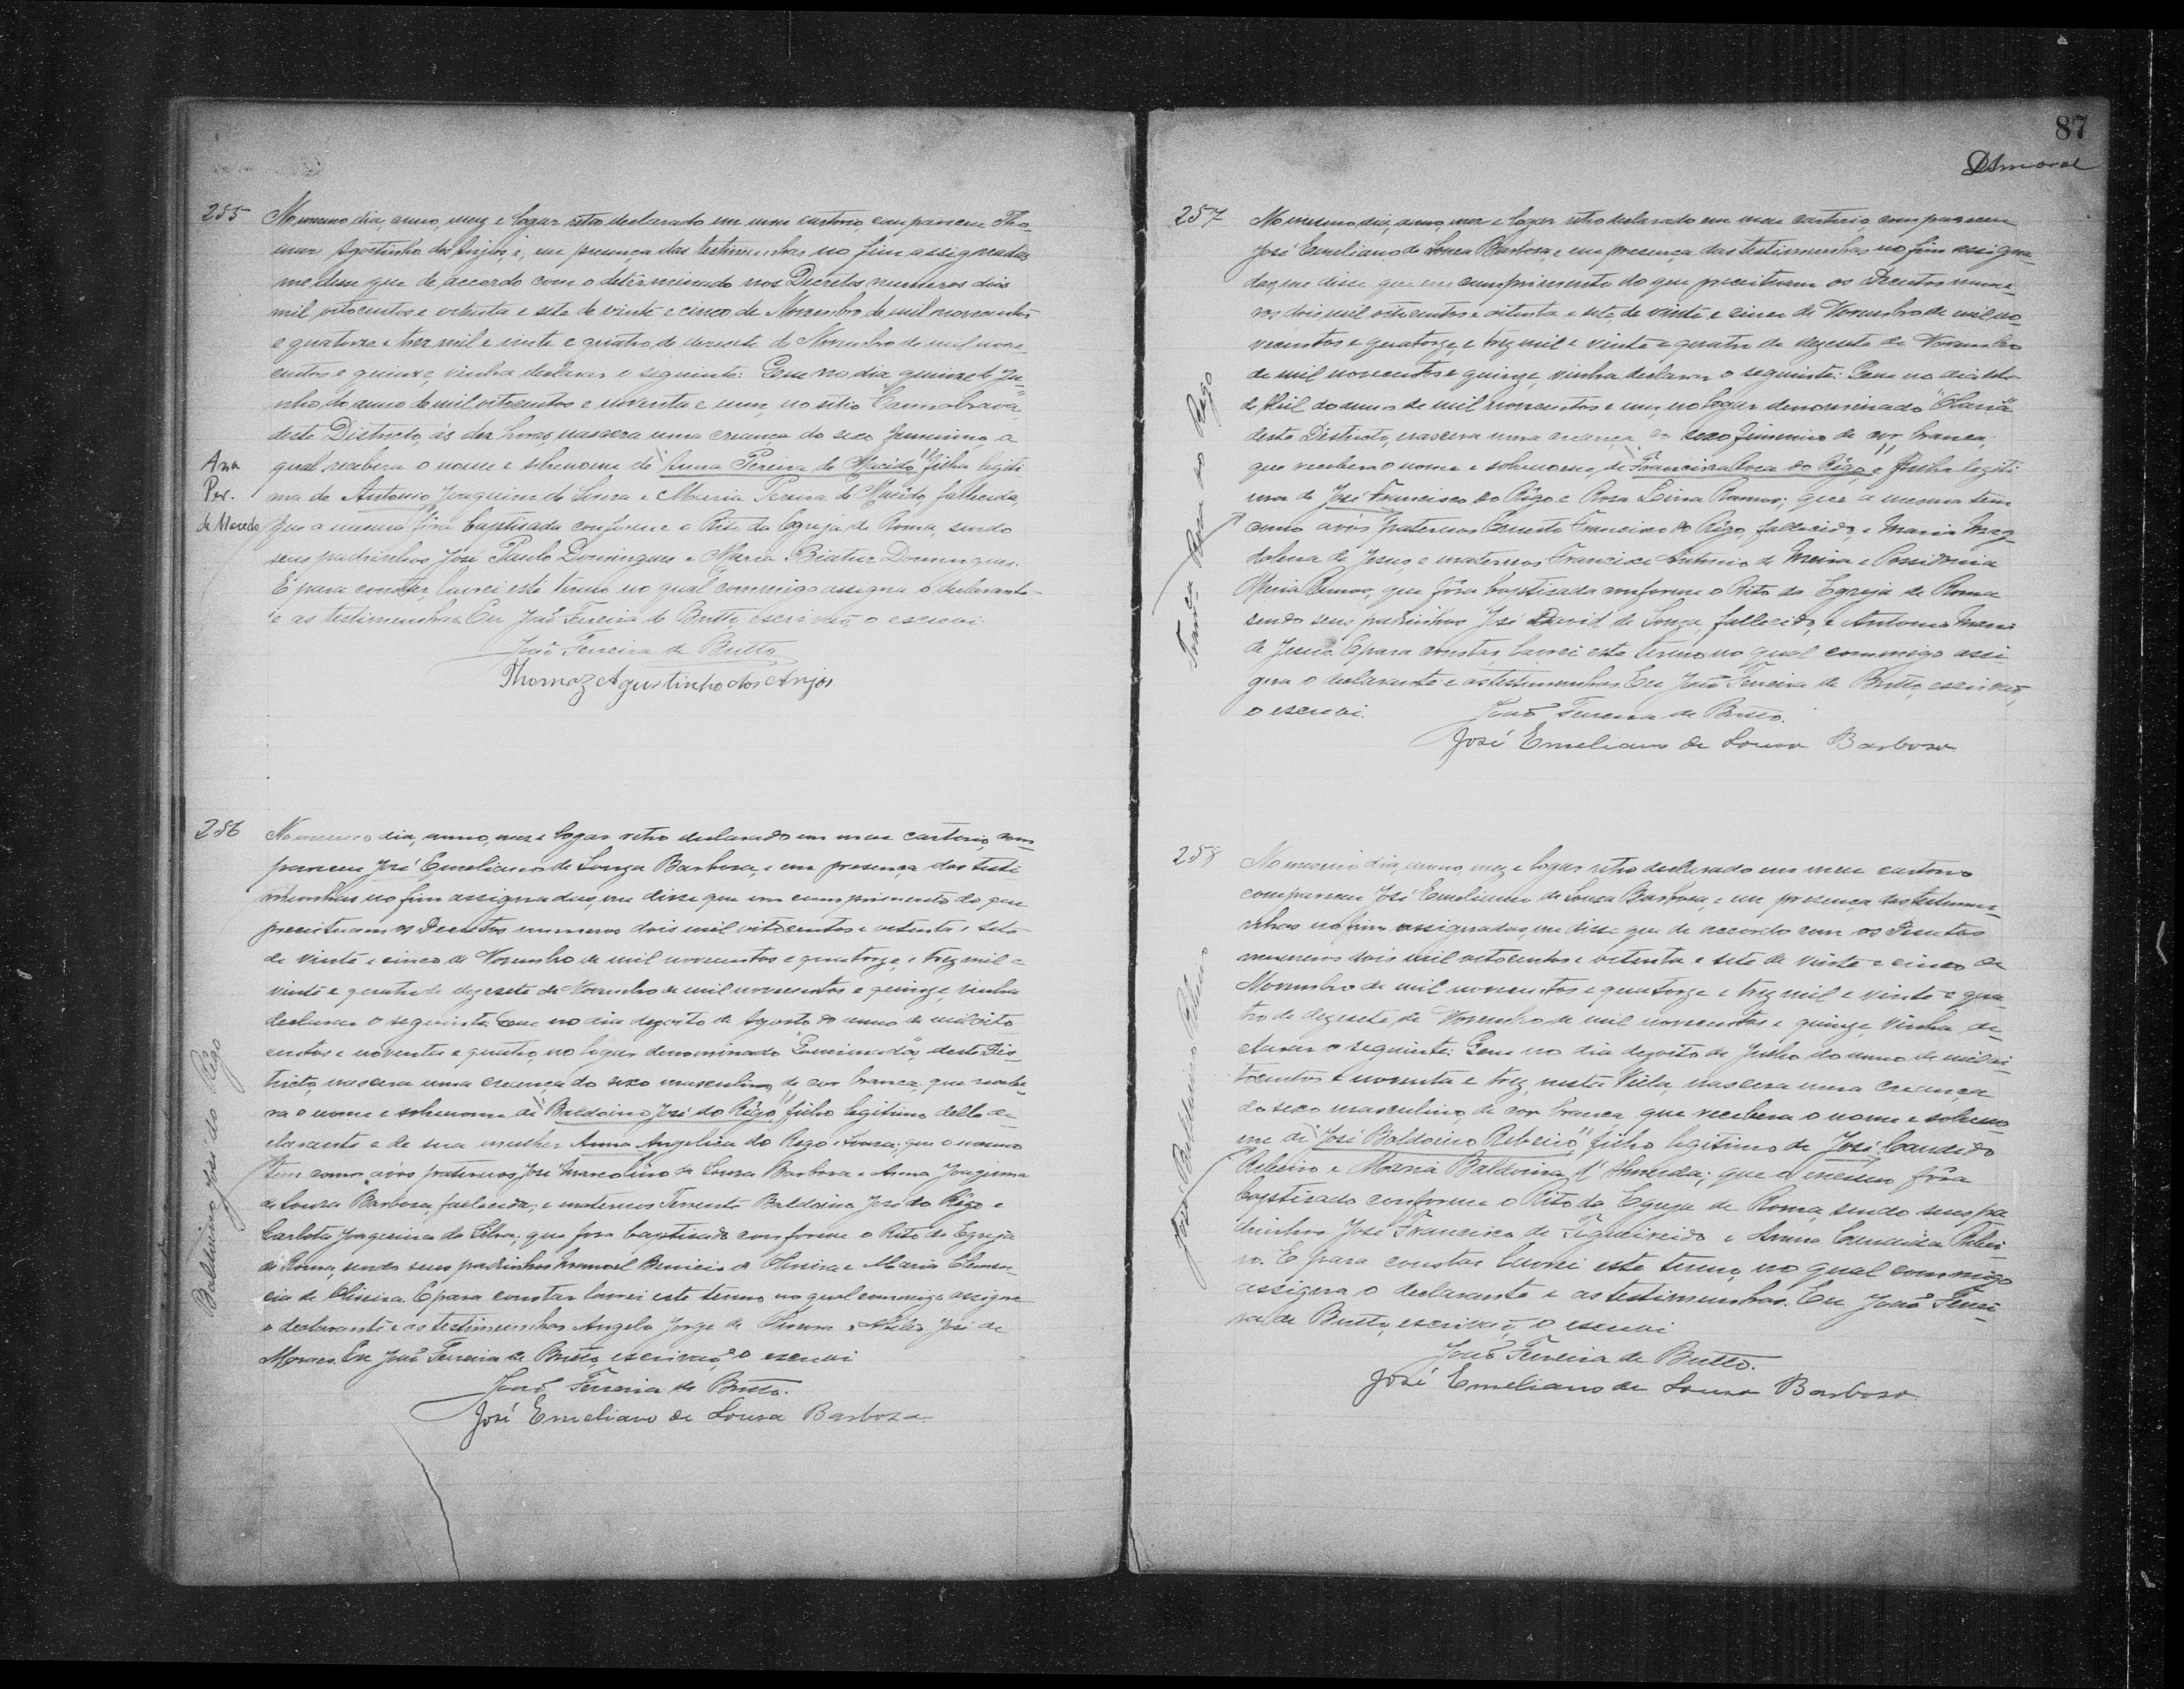 255
No mesmo dia, anno, mez e logar retro declarado em meu cartorio, compareceu Tho-
maz Agostinho dos Anjos, e, em presença das testimunhas no fim assignadas
me disse que de accordo com o determinado nos Decretos numeros dois
mil oitocentos e oitenta e sete de vinte e cinco de Novembro de mil novecentos
e quatorze e trez mil e vinte e quatro de dezesete de Novembro de mil nove-
centos e quinze, vinha declarar o seguinte: Que no dia quinze de Ju-
nho do anno de mil oitocentos e noventa e um, no sitio "Cannabrava"
deste Districto, ás dez horas nascera uma creança do sexo femenino, a
qual recebera o nome e sobrenome de "Anna Pereira de Macêdo," filha legiti-
ma de Antonio Joaquim de Souza e Maria Pereira de Macêdo, fallecida,
que a mesma fôra baptisada conforme o Rito da Egreja de Roma, sendo
seus padrinhos José Paulo Domingues e Maria Biatriz Domingues.
E para constar, lavrei este termo no qual commigo assigna o declarante
e as testimunhas. Eu João Ferreira de Britto, escrivão o escrevi
João Ferreira de Britto
Thomaz Agustinho dos Anjos
Ana
Per.
de Macedo
256
No mesmo dia, anno, mez e logar retro declarado em meu cartorio, com-
pareceu José Emeliano de Souza Barbosa, e em presença das testi-
munhas no fim assignadas, me disse que em cumprimento do que
preceituam os Decretos numeros dois mil oitocentos e oitenta e sete
de vinte e cinco de Novembro de mil novecentos e quatorze, e trez mil e
vinte e quatro de dezesete de Novembro de mil novecentos e quinze, vinha
declarar o seguinte: Que no dia dezoito de Agosto do anno de mil oito
centos e noventa e quatro, no logar denominado "Queimada", deste Dis-
tricto, nascera uma creança do sexo masculino, de cor branca, que recebe-
ra o nome e sobrenome de "Baldoino José do Rêgo," filho legitimo delle de-
clarante e de sua mulher Anna Angelica do Rego Souza; que o mesmo
tem como avós paternos José Marcolino de Souza Barbosa e Anna Joaquina
de Souza Barbosa, fallecida; e maternos Tenente Baldoino José do Rêgo e
Carlota Joaquina da Silva; que fora baptisado conforme o Rito da Egreja
de Roma, sendo seus padrinhos Manoel Benicio de Oliveira e Maria Clemen-
cia de Oliveira. E para constar lavrei este termo no qual commigo assigna
o declarante e as testimunhas Angelo Jorge de e José de
Moraes. Eu João Ferreira de Britto, escrivão o escrevi
João Ferreira de Britto.
José Emeliano de Sousa Barboza
Balduino José do Rêgo
87
DAmaral
257
No mesmo dia, anno, mez e logar retro declarado em meu cartorio, compareceu
José Emeliano de Souza Barbosa, e em presença das testimunhas no fim assigna-
das, me disse que em cumprimento do que preceituam os Decretos nume-
ros dois mil oitocentos e oitenta e sete de vinte e cinco de Novembro de mil no-
vecentos e quatorze, e trez mil e vinte e quatro de dezesete de Novembro
de mil novecentos e quinze, vinha declarar o seguinte: Que no dia
de Abril do anno de mil novecentos e um, no logar denominado "Olaria"
deste Districto, nascera uma creança do sexo femenino de cor branca,
que recebera o nome e sobrenome, de "Francisca Rosa do Rêgo," e filha legiti-
ma de José Francisco do Rêgo e Rosa Lina Ramos; que a mesma tem
como avós paternos Ernesto Francisco do Rêgo, fallecido, e Maria Mag-
dalena de Jesus, e maternos Francisco Antonio de Meira e Possidonia
Maria Ramos, que fôra baptisada conforme o Rito da Egreja de Roma
sendo seus padrinhos José David de Souza, fallecido, e Antonia Maria
de Jesus. E para constar, lavrei este termo no qual commigo assi
gna o declarante e as testimunhas. Eu João Ferreira de Britto, escrivão,
o escrevi.
João Ferreira de Britto.
José Emeliano de Sousa Barboso
Franca Rosa do Rego
258
No mesmo dia, anno, mez e logar retro declarado em meu cartorio
compareceu José Emeliano de Souza Barbosa, e em presença das testimu-
nhas no fim assignadas, me disse que de accordo com os Decretos
numeros dois mil oitocentos e oitenta e sete de vinte e cinco de
Novembro de mil novecentos e quatorze e trez mil e vinte e qua-
tro de dezesete de Novembro de mil novecentos e quinze, vinha de-
clarar o seguinte: Que no dia dezoito de Julho do anno de mil oi-
tocentos e noventa e trez, nesta Villa, nascera uma creança
do sexo masculino, de cor branca, que recebera o nome e sobreno-
me de "José Baldoino Ribeiro," filho legitimo de José Candido
Ribeiro e Maria Baldoina d'Almeida; que o mesmo fôra
baptisado conforme o Rito da Egreja de Roma, sendo seus pa
drinhos José Francisco de Figueiredo e Anna Candida Ribei-
ro. E para constar lavrei este termo, no qual commigo
assigna o declarante e as testimunhas. Eu João Ferrei-
ra de Britto, escrivão, o escrevi
João Ferreira de Britto.
José Emeliano de Souza Barboso
José Balduino Ribeiro